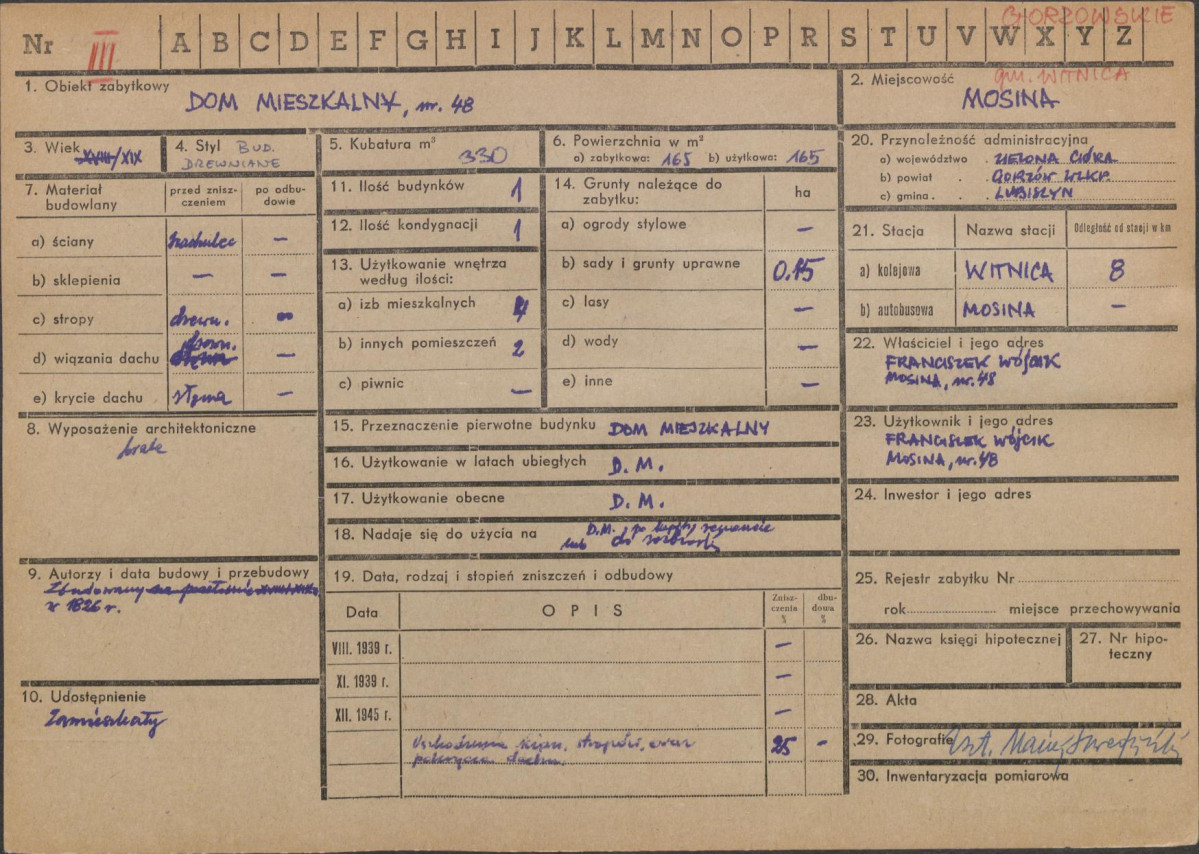 GORZOWSKIE
Nr III A B C D E F G H I J K L M N O P R S T U V W X Y Z
gm. WITNICA
1. Obiekt zabytkowy
DOM MIESZKALNY, nr. 48
2. Miejscowość
MOSINA
3. Wiek XVIII/XIX
4. Styl BUD.
DREWNIANE
5. Kubatura m³
330
6. Powierzchnia w m²
a) zabytkowa: 165 b) użytkowa: 165
7. Materiał budowlany
przed zniszczeniem
po odbudowie
a) ściany szachulec —
b) sklepienia — —
c) stropy drewn. —
d) wiązania dachu drewn. —
e) krycie dachu słoma —
8. Wyposażenie architektoniczne
brak
9. Autorzy i data budowy i przebudowy
Zbudowany
w 1826 r.
10. Udostępnienie
Zamieszkały
11. Ilość budynków 1
12. Ilość kondygnacji 1
13. Użytkowanie wnętrza
według ilości:
a) izb mieszkalnych 4
b) innych pomieszczeń 2
c) piwnic —
14. Grunty należące do
zabytku:
ha
a) ogrody stylowe —
b) sady i grunty uprawne 0.15
c) lasy —
d) wody —
e) inne —
15. Przeznaczenie pierwotne budynku DOM MIESZKALNY
16. Użytkowanie w latach ubiegłych D. M.
17. Użytkowanie obecne D. M.
18. Nadaje się do użycia na D.M. po remoncie
lub do rozbiórki
19. Data, rodzaj i stopień zniszczeń i odbudowy
Data
OPIS
Zniszczenia %
dbudowa %
VIII. 1939 r. —
XI. 1939 r. —
XII. 1945 r. —
Uszkodzenia ścian, stropów, oraz
pokrycia dachu. 25 —
20. Przynależność administracyjna
a) województwo . ZIELONA GÓRA
b) powiat . GORZÓW WLKP.
c) gmina . . LUBISZYN
21. Stacja
Nazwa stacji
Odległość od stacji w km
a) kolejowa WITNICA 8
b) autobusowa MOSINA —
22. Właściciel i jego adres
FRANCISZEK WÓJCIK
MOSINA, nr. 48
23. Użytkownik i jego adres
FRANCISZEK WÓJCIK
MOSINA, nr. 48
24. Inwestor i jego adres
25. Rejestr zabytku Nr
rok miejsce przechowywania
26. Nazwa księgi hipotecznej
27. Nr hipoteczny
28. Akta
29. Fotografie
30. Inwentaryzacja pomiarowa